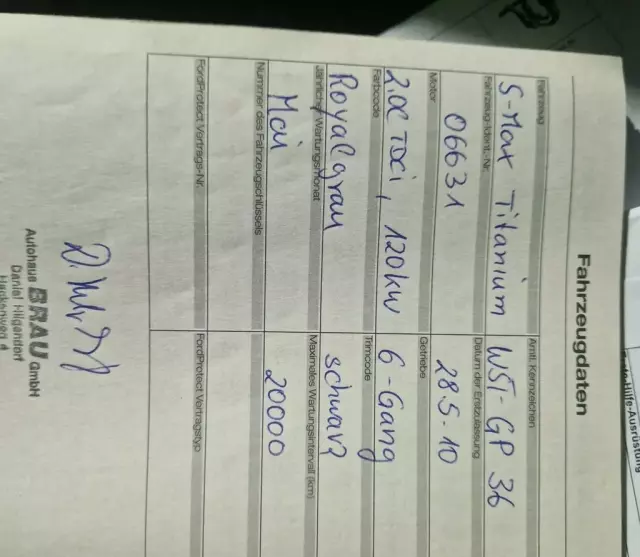 Fahrzeugdaten
Fahrzeug
S-Max Titanium
Amtl. Kennzeichen
WST-GP 36
Fahrzeug-Ident.-Nr.
06631
Datum der Erstzulassung
28.5-10
Motor
2.0l TDCi, 120kw
Getriebe
6-Gang
Farbcode
Royalgrau
Trimcode
schwarz
Jährlicher Wartungsmonat
Mai
Maximales Wartungsintervall (km)
20000
Nummer des Fahrzeugschlüssels
FordProtect Vertrags-Nr.
FordProtect Vertragstyp
Autohaus BRAU GmbH
Daniel Hilgendorf
-Hilfe-Ausrüstung